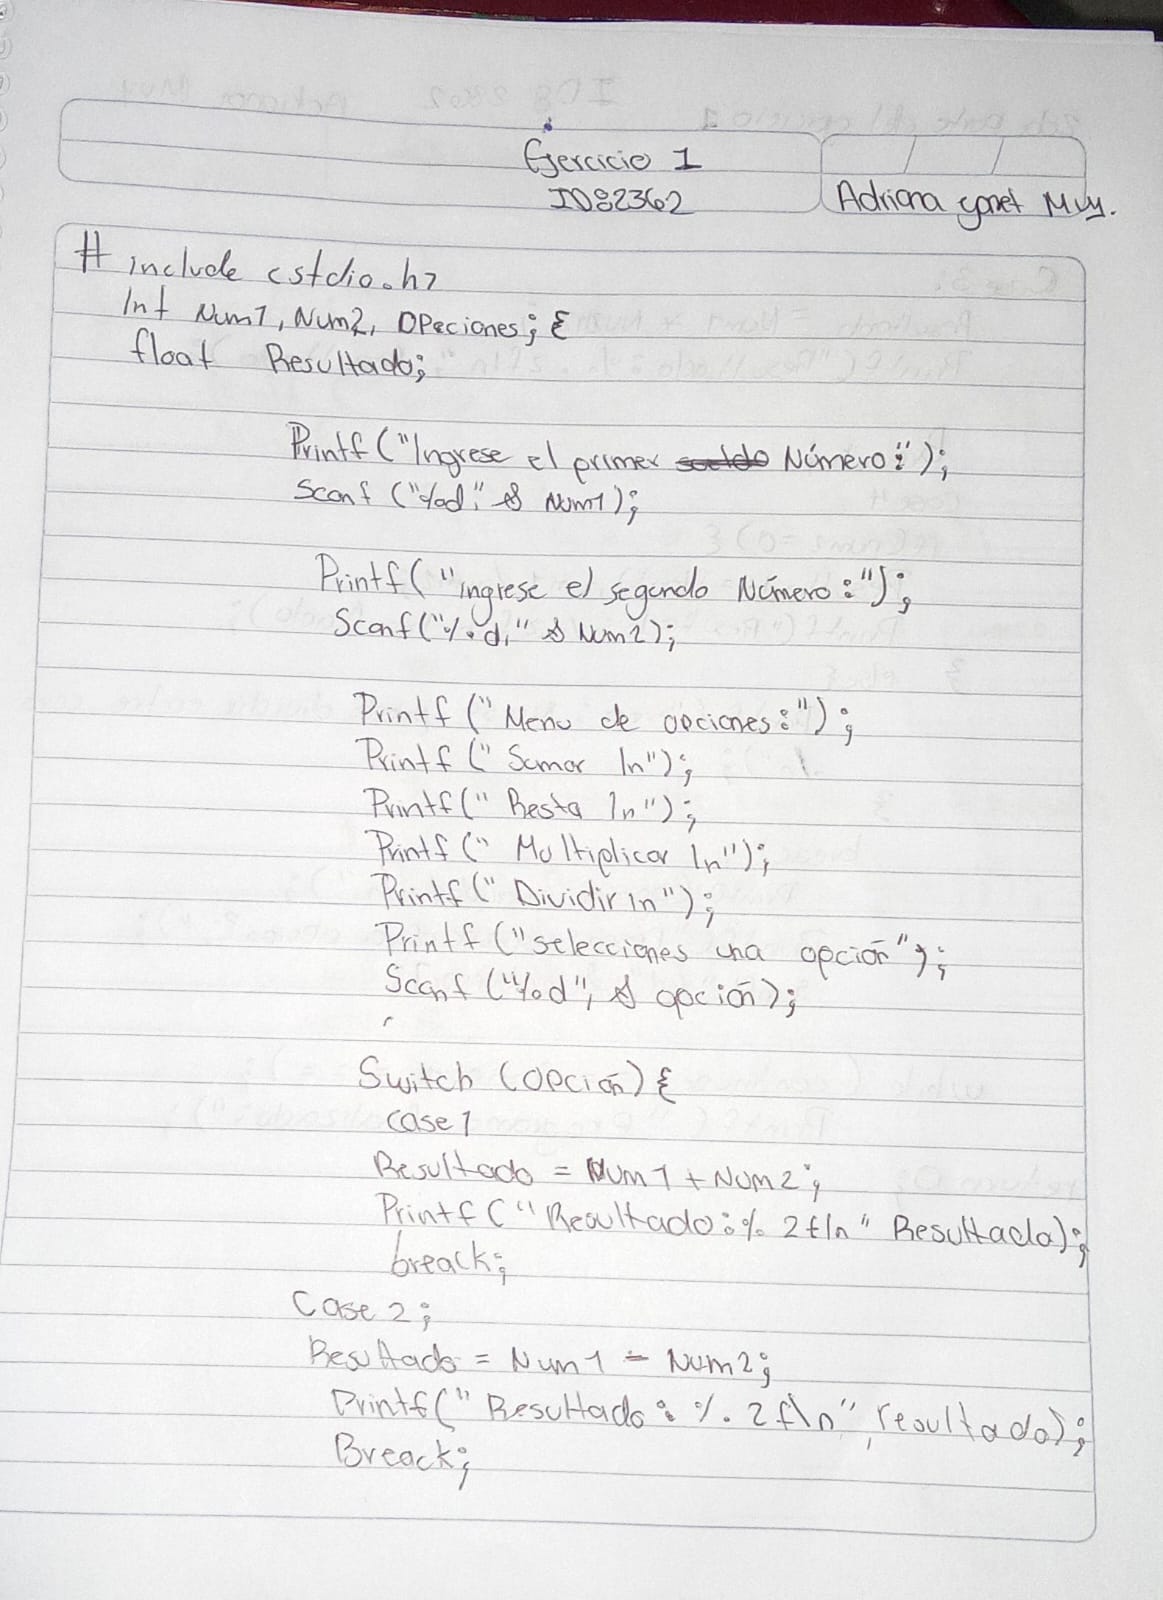 Ejercicio 1
ID82362
Adriana yanet Muy.
# include <stdio.h>
Int Num1, Num2, OPeciones; {
float Resultado;
Printf ("Ingrese el primer Número:");
Scanf ("%d," & Num1);
Printf ("Ingrese el segundo Número:");
Scanf("%d," & Num2);
Printf ("Menu de opciones:");
Printf (" Sumar \n");
Printf (" Resta \n");
Printf (" Multiplicar \n");
Printf (" Dividir \n");
Printf ("selecciones una opción");
Scanf ("%d", & opción);
Switch (opción) {
case 1
Resultado = Num1 + Num2;
Printf ("Resultado:% 2f\n" Resultado);
breack;
Case 2;
Resultado = Num1 - Num2;
Printf(" Resultado: %. 2f\n", resultado);
Breack;